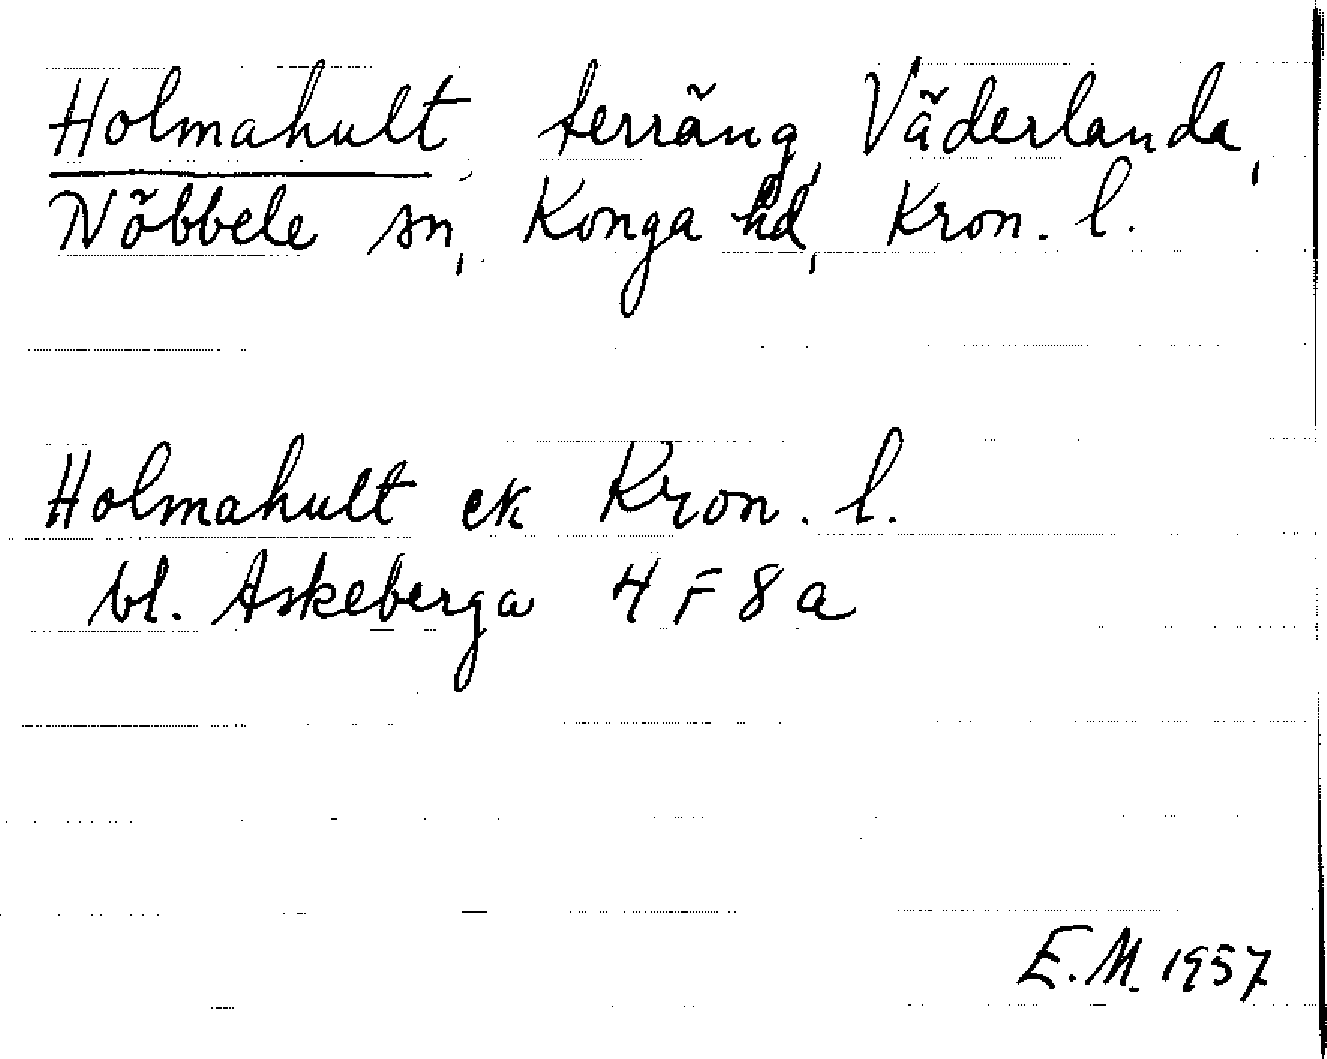 Holmahult, terräng, Väderlanda,
Nöbbele sn, Konga hd, Kron. l.
Holmahult ek Kron. l.
bl. Askeberga 4 F 8 a
E.M. 1957